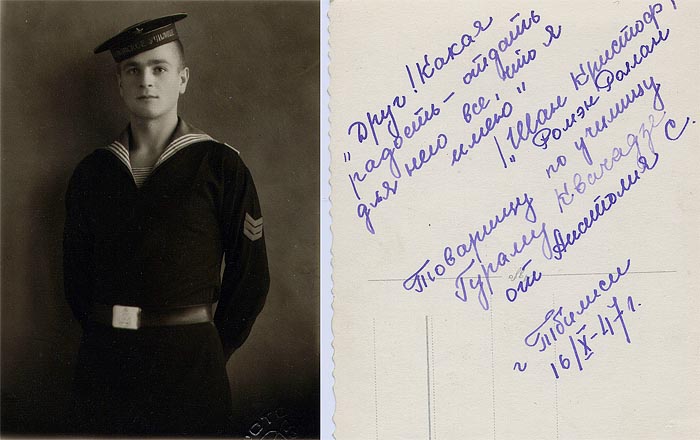 „Друг! Какая
радость – отдать
для него все, что я
имею"
/„Жан Кристоф"/
„Ромэн Ролан
Товарищу по училищу
Гураму Квачадзе
от Анатолия С.
г Тбилиси
16/X-47г.